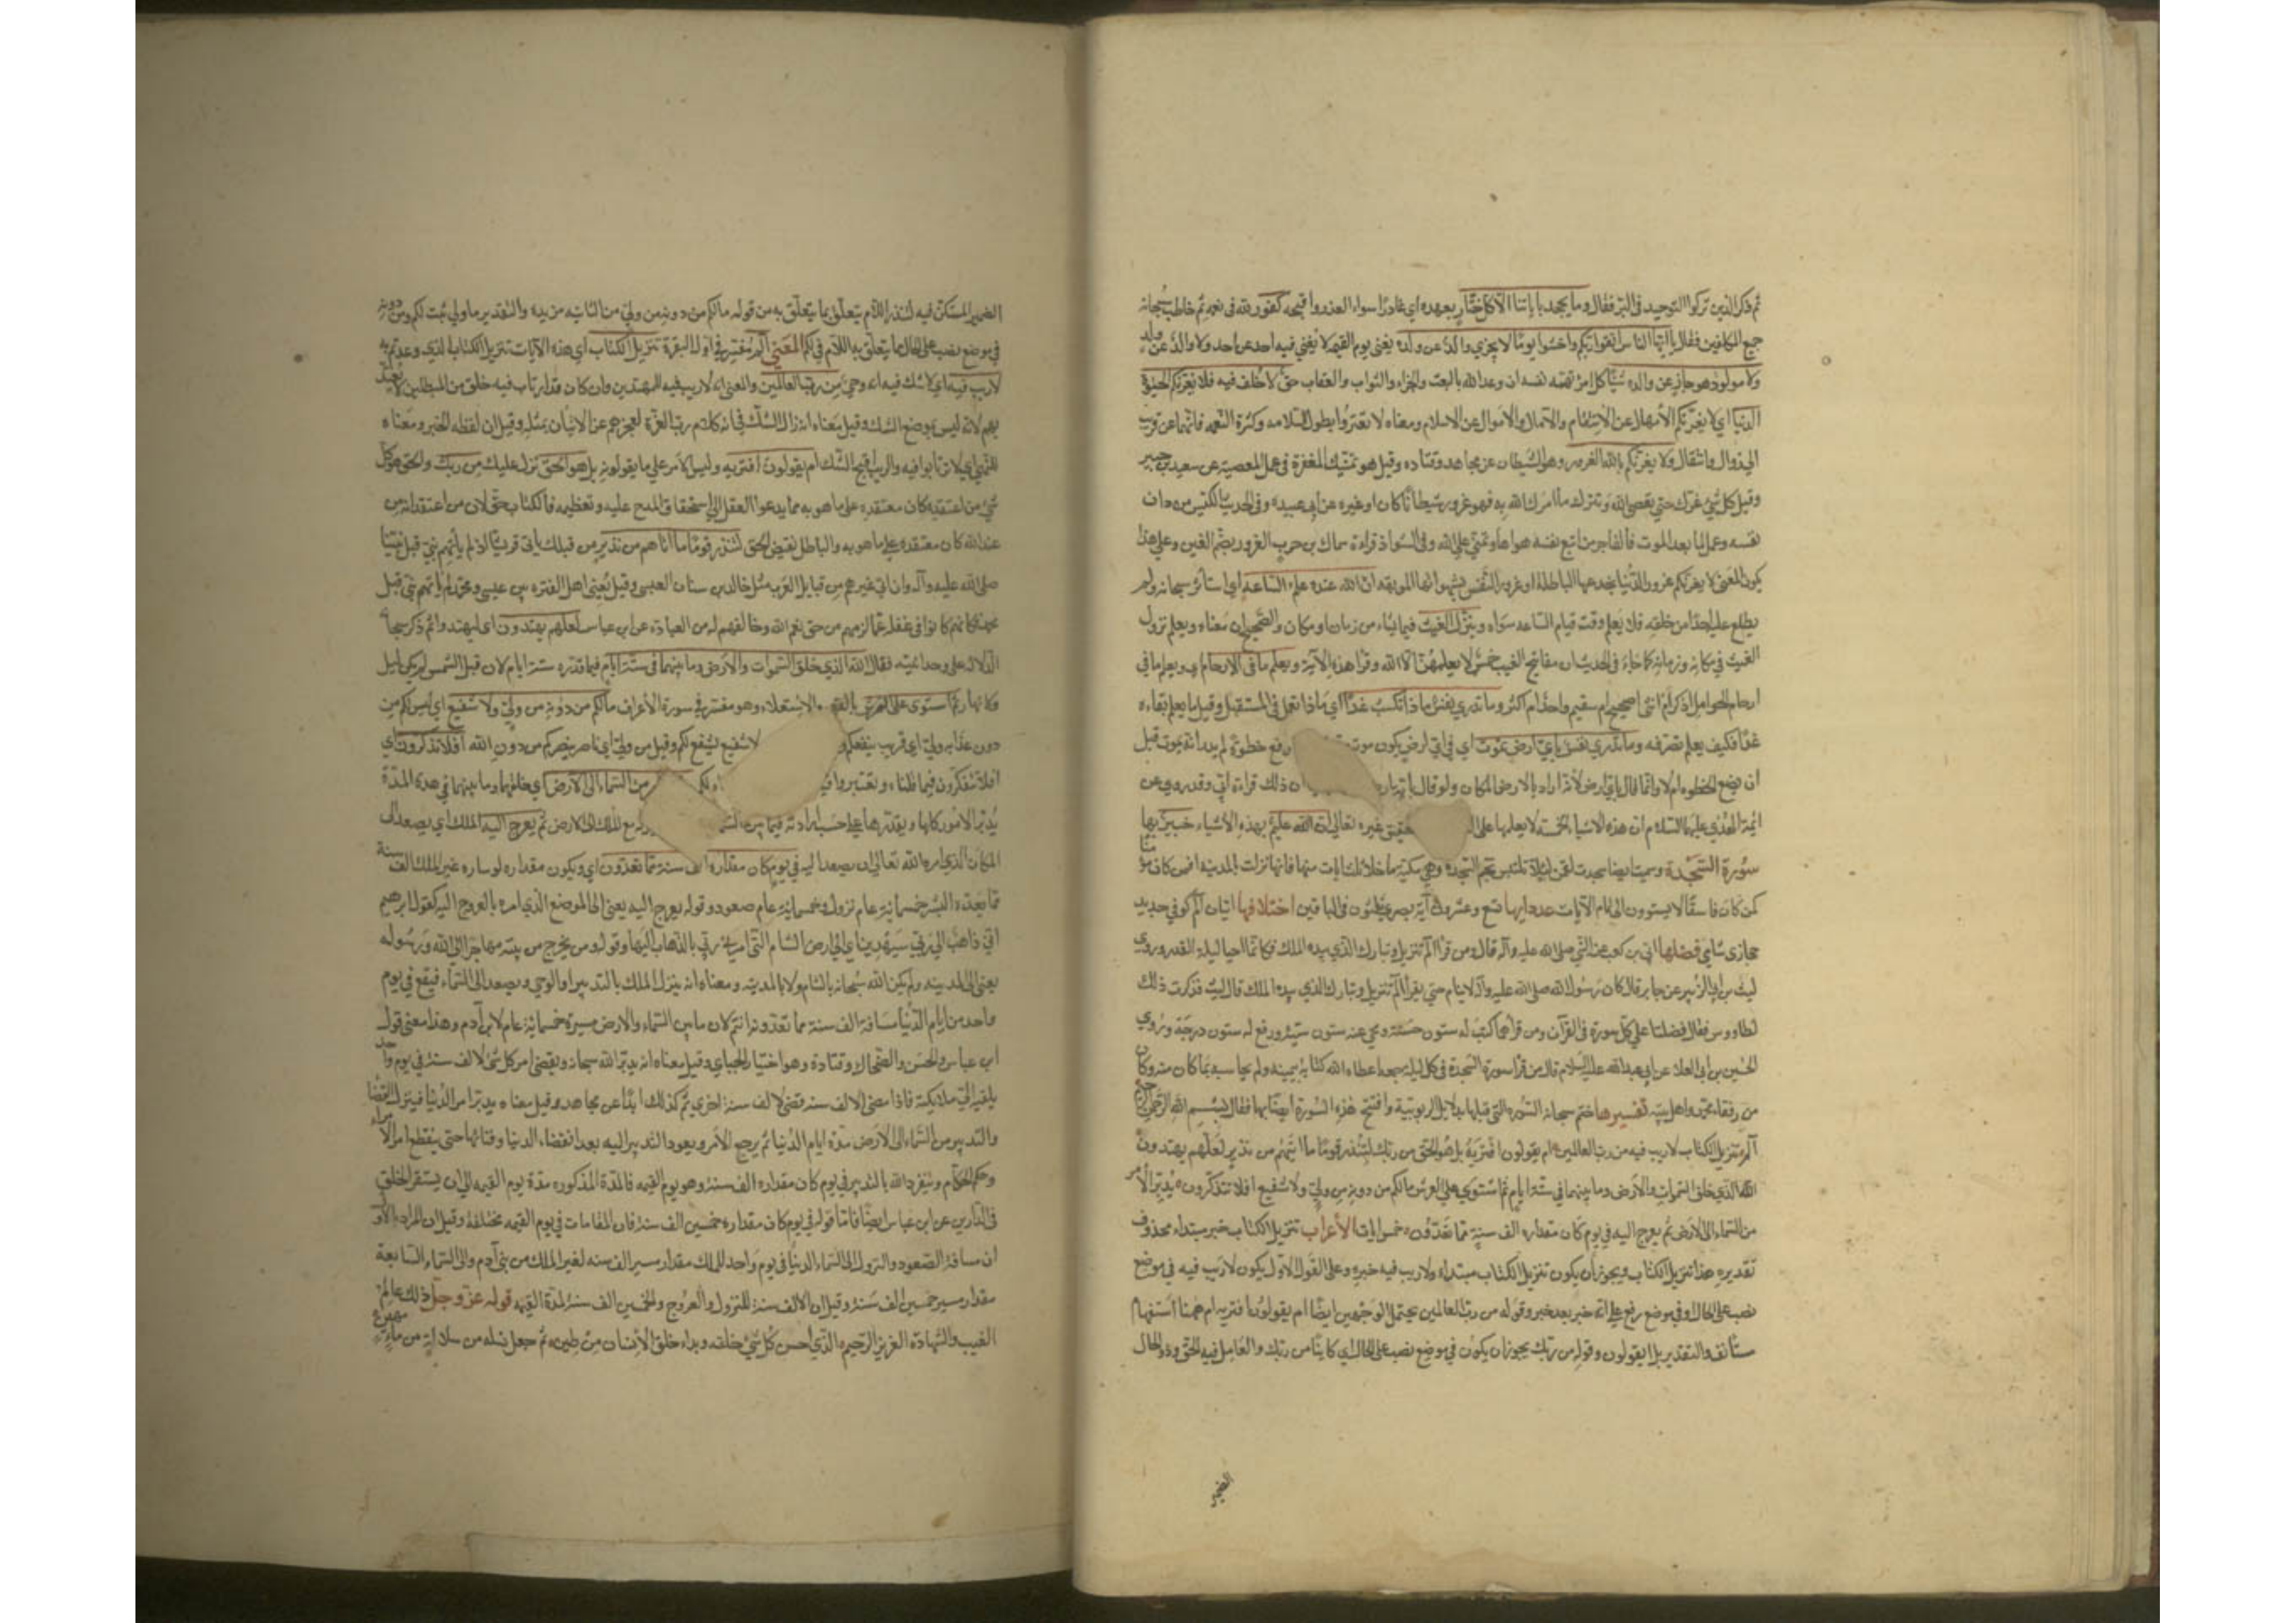 ثم ذكر الذين تركوا التوحيد في البر فقال وما يجحد بآياتنا الا كل ختار بعهده اي غادر اسواء الغدر واقبحه كفور لله في نعمه ثم خاطب سبحانه
جميع المكلفين فقال يا ايها الناس اتقوا ربكم واخشوا يوما لا يجزي والد عن ولده يعني يوم القيمه لا يغني فيه احد عن احد ولا والد عن ولد
ولا مولود هو جاز عن والده شيئا كل امرئ تهمه نفسه ان وعد الله بالبعث والجزاء والثواب والعقاب حق لا خلف فيه فلا تغرنكم الحيوة
الدنيا اي لا يغرنكم الامهال عن الانتقام والآمال والاموال عن الاسلام ومعناه لا تغتروا بطول السلامه وكثرة النعمه فانها عن قريب
الى زوال وانتقال ولا يغرنكم بالله الغرور وهو الشيطان عن مجاهد وقتاده وقيل هو تمنيك المغفرة في عمل المعصية عن سعيد بن جبير
وقيل كل شيء غرك حتى تعصي الله وتترك ما امرك الله به فهو غرور شيطانا كان او غيره عن ابي عبيده وفي الحديث الكيس من دان
نفسه وعمل لما بعد الموت والفاجر من اتبع نفسه هواها وتمنى على الله وفي الشواذ قراءة سماك بن حرب الغرور بضم الغين وعلى هذا
يكون المعنى لا يغرنكم غرور الدنيا بخدعها الباطلة او غرور النفس بشهواتها الموبقه ان الله عنده علم الساعه اي استأثر سبحانه ولم
يطلع عليه احدا من خلقه فلا يعلم وقت قيام الساعه سواه وينزل الغيث فيما يشاء من زمان او مكان والصحيح ان معناه ويعلم نزول
الغيث في مكانه وزمانه كما جاء في الحديث ان مفاتح الغيب خمس لا يعلمهن الا الله وقرا هذه الآية ويعلم ما في الارحام اي ويعلم ما في
ارحام الحوامل اذكر ام انثى اصحيح ام سقيم واحد ام اكثر وما تدري نفس ماذا تكسب غدا اي ماذا تعمل في المستقبل وقيل ما يعلم بقاءه
غدا فكيف يعلم تصرفه وما تدري نفس باي ارض تموت اي في اي ارض يكون موته رفع خطوة لم يدر انه يموت قبل
ان يضع الخطوه ام لا وانما قال باي ارض لانه اراد بالارض المكان ولو قال باية ان ذلك قراءة ابي وقد روي عن
ائمة الهدى عليهم السلام ان هذه الاشياء الخمسة لا يعلمها على التحقيق غيره تعالى ان الله عليم بهذه الاشياء خبير بها
سورة السجدة وسميت ايضا سجدت لقمن لئلا تلتبس بحم السجدة وهي مكية ما خلا ثلث ايات منها فانها نزلت بالمدينه افمن كان مؤمنا
كمن كان فاسقا لا يستوون الى تمام الآيات عدد ايها تسع وعشرون آية بصري ثلثون في الباقين اختلافها ايتان الم كوفي جديد
حجازي شامي فضلها ابي بن كعب عن النبي صلى الله عليه وآله قال ومن قرا الم تنزيل وتبارك الذي بيده الملك فكانما احيا ليلة القدر وروى
ليث بن ابي الزبير عن جابر قال كان رسول الله صلى الله عليه وآله لا ينام حتى يقرأ الم تنزيل وتبارك الذي بيده الملك قال ليث فذكرت ذلك
لطاووس فقال فضلتا على كل سورة في القرآن ومن قراهما كتب له ستون حسنة ومحي عنه ستون سيئة ورفع له ستون درجة وروي
الحسين بن ابي العلا عن ابي عبد الله عليه السلام قال من قرا سورة السجدة في كل ليلة جمعه اعطاه الله كتابه بيمينه ولم يحاسبه بما كان منه وكان
من رفقاء محمد واهل بيته تفسيرها ختم سبحانه السوره التي قبلها بدلايل الربوبية وافتتح هذه السورة ايضا بها فقال بسم الله الرحمن الرحيم
الم تنزيل الكتاب لا ريب فيه من رب العالمين ام يقولون افتريه بل هو الحق من ربك لتنذر قوما ما اتيهم من نذير لعلهم يهتدون
الله الذي خلق السموات والارض وما بينهما في ستة ايام ثم استوى على العرش ما لكم من دونه من ولي ولا شفيع افلا تتذكرون يدبر الامر
من السماء الى الارض ثم يعرج اليه في يوم كان مقداره الف سنة مما تعدون خمس ايات الاعراب تنزيل الكتاب خبر مبتداء محذوف
تقديره هذا تنزيل الكتاب ويجوز ان يكون تنزيل الكتاب مبتداء ولا ريب فيه خبره وعلى القول الاول يكون لا ريب فيه في موضع
نصب على الحال او في موضع رفع على انه خبر بعد خبر وقوله من رب العالمين يحتمل الوجهين ايضا ام يقولون افتريه ام ههنا استفهام
مستأنف والتقدير بل ايقولون وقوله من ربك يجوز ان يكون في موضع نصب على الحال اي كاينا من ربك والعامل فيه الحق وذو الحال
الضمير
الضمير المستكن فيه لتنذر اللام يتعلق بما يتعلق به من قوله ما لكم من دونه من ولي من الثانيه مزيده والتقدير ما ولي ثبت لكم ومن دونه
في موضع نصب على الحال مما يتعلق به اللام في لكم المعنى الم مفسر في اول البقرة تنزيل الكتاب اي هذه الآيات تنزيل الكتاب الذي وعدتم به
لا ريب فيه اي لا شك فيه انه وحي من رب العالمين والمعنى انه لا ريب فيه للمهتدين وان كان قد ارتاب فيه خلق من المبطلين لا يعتد
بهم لانه ليس بموضع الشك وقيل معناه انه زال الشك في انه كلام رب العزة لعجزهم عن الاتيان بمثله وقيل ان لفظه الخبر ومعناه
النهي اي لا ترتابوا فيه والريب اقبح الشك ام يقولون افتريه وليس الامر على ما يقولونه بل هو الحق نزل عليك من ربك والحق هو كل
شيء من اعتقده كان معتقده على ما هو به مما يدعوا العقل الى استحقاق المدح عليه وتعظيمه فالكتاب حق لان من اعتقد انه من
عند الله كان معتقده على ما هو به والباطل نقيض الحق لتنذر قوما ما اتاهم من نذير من قبلك يعني قريشا اذ لم يأتهم نبي قبل نبينا
صلى الله عليه وآله وان اتى غيرهم من قبايل العرب مثل خالد بن سنان العبسي وقيل يعني اهل الفتره بين عيسى ومحمد لم يأتهم نبي قبل
محمد فكانهم كانوا في غفلة عما لزمهم من حق نعم الله وخالفهم له من العبادة عن ابن عباس لعلهم يهتدون اي ليهتدوا ثم ذكر سبحانه
الدلالة على وحدانيته فقال الله الذي خلق السموات والارض وما بينهما في ستة ايام فيما قدره ستة ايام لان قبل الشمس لم يكن ليل
ولا نهار ثم استوى على العرش بالقهر والاستعلاء وهو مفسر في سورة الاعراف ما لكم من دونه من ولي ولا شفيع اي ليس لكم من
دون عذابه ولي اي قريب ينفعكم و لا شفيع يشفع لكم وقيل من ولي اي ناصر ينصركم من دون الله افلا تتذكرون اي
افلا تتفكرون فيما قلناه وتعتبروا من السماء الى الارض اي خلقهما وما بينهما في هذه المدة
يدبر الامور كلها ويقدرها على حسب ارادته فيما بين السماء مع الملك الى الارض ثم يعرج اليه الملك اي يصعد الى
المكان الذي امره الله تعالى ان يصعد اليه في يوم كان مقداره الف سنة مما تعدون اي ويكون مقداره لو ساره غير الملك الف سنة
مما يعده البشر خمسمائة عام نزول وخمسمائة عام صعود وقوله يعرج اليه يعني الى الموضع الذي امره بالعروج اليه كقول ابرهيم
اني ذاهب الى ربي سيهدين اي الى ارض الشام التي امرني ربي بالذهاب اليها وقوله ومن يخرج من بيته مهاجرا الى الله ورسوله
يعني الى المدينه ولم يكن الله سبحانه بالشام ولا بالمدينه ومعناه انه ينزل الملك بالتدبير او الوحي ويصعد الى السماء فيقع في يوم
واحد من ايام الدنيا مسافة الف سنة مما تعدونه انتم لان ما بين السماء والارض مسيرة خمسمائة عام لابن آدم وهذا معنى قول
ابن عباس والحسن والضحاك وقتادة وهو اختيار الجبائي وقيل معناه انه يدبر الله سبحانه ويقضي امر كل شيء لالف سنة في يوم واحد
يلقيه الى ملائكته فاذا مضى الالف سنه قضى لالف سنة اخرى ثم كذلك ابدا عن مجاهد وقيل معناه يدبر امر الدنيا فينزل القضاء
والتدبير من السماء الى الارض مدة ايام الدنيا ثم يرجع الامر ويعود التدبير اليه بعد انقضاء الدنيا وفنائها حتى ينقطع امر الامراء
وحكم الحكام وينفرد الله بالتدبير في يوم كان مقداره الف سنة وهو يوم القيمه فالمدة المذكوره مدة يوم القيمه الى ان يستقر الخلق
في الدارين عن ابن عباس ايضا فاما قوله في يوم كان مقداره خمسين الف سنة فان المقامات في يوم القيمه مختلفة وقيل ان المراد بالاول
ان مسافة الصعود والنزول الى السماء الدنيا في يوم واحد للملك مقدار مسير الف سنه لغير الملك من بني آدم والى السماء السابعة
مقدار مسير خمسين الف سنة وقيل ان الالف سنة للنزول والعروج والخمسين الف سنة لمدة القيمه قوله عز وجل ذلك عالم
الغيب والشهادة العزيز الرحيم الذي احسن كل شيء خلقه وبداء خلق الانسان من طين ثم جعل نسله من سلالة من ماء مهين